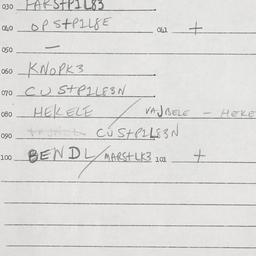 030 FARStPIL83
040 OPStPIL8E 041 +
050 —
060 KNOPK3
070 CUStPIL83N
080 HEKELE / VAJBELE - HEKE
090 CUStPIL83N
100 BENDL / MARStLK3 101 +